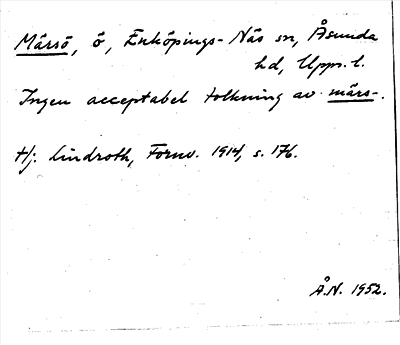 Märsö, ö, Enköpings-Näs sn, Åsunda
hd, Upps. l.
Ingen acceptabel tolkning av märs-.
Hj. Lindroth, Fornv. 1914, s. 176.
Å.N. 1952.